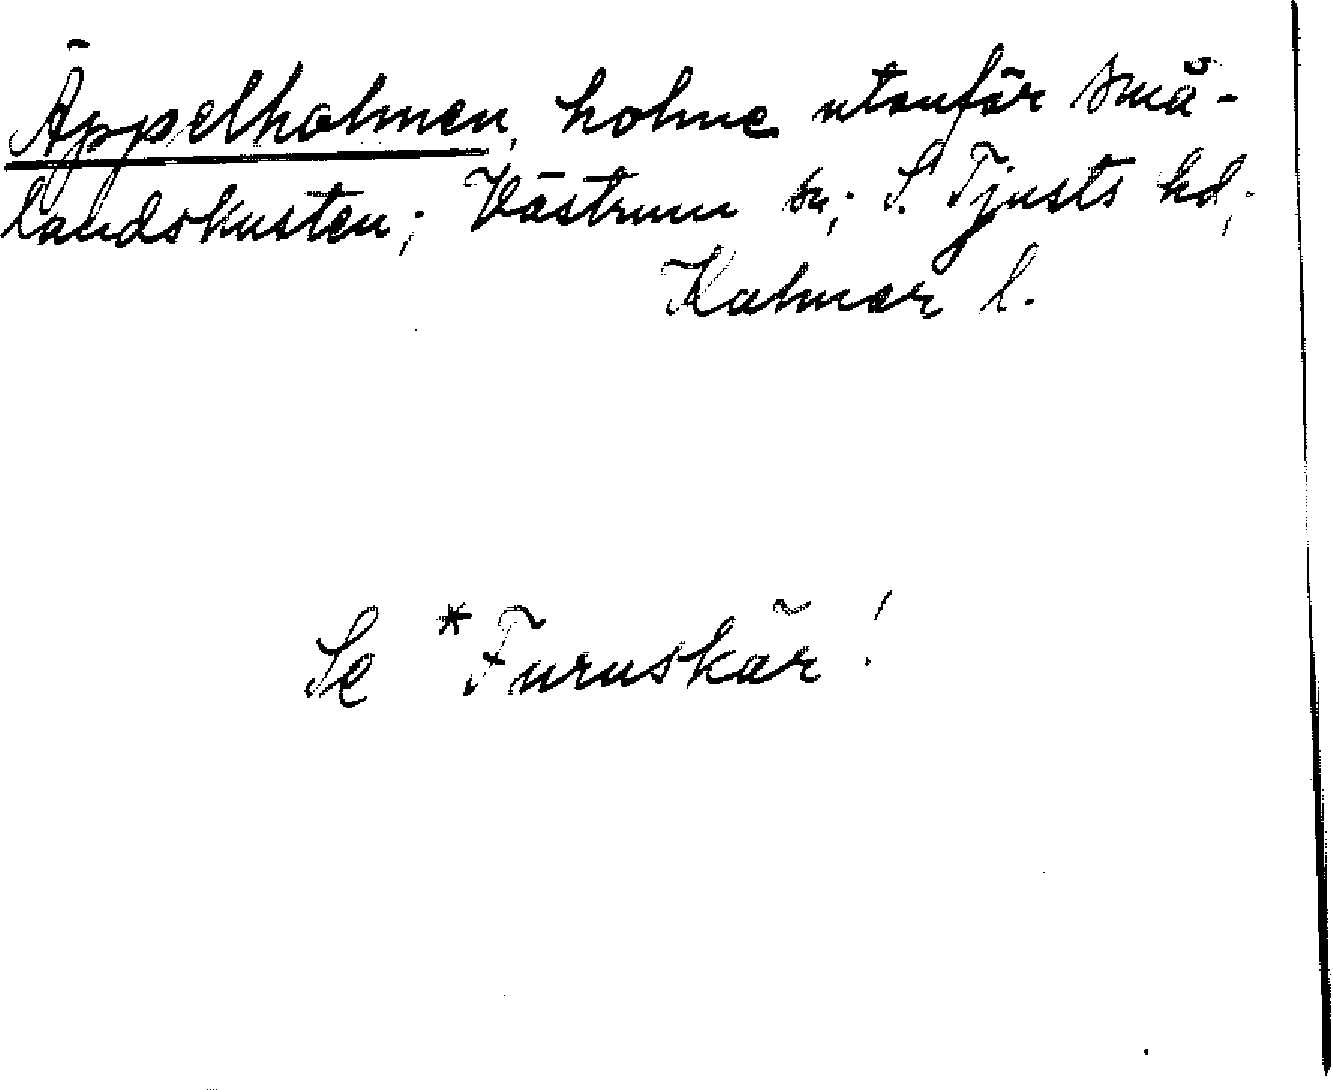 Äppelholmen, holme utanför små-
landskusten; Västrum sn; S. Tjusts hd;
Kalmar l.
Se *Furuskär!